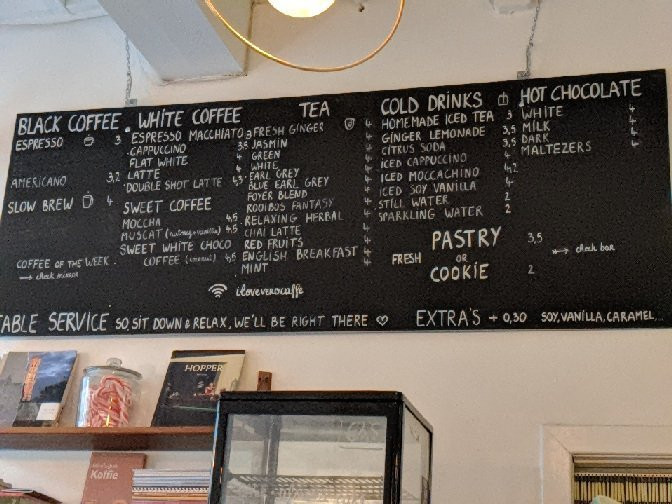 BLACK COFFEE
ESPRESSO 3
AMERICANO 3,2
SLOW BREW 4
COFFEE OF THE WEEK
→ check mirror
WHITE COFFEE
ESPRESSO MACCHIATO 3
CAPPUCCINO 3,5
FLAT WHITE 4
LATTE 4
DOUBLE SHOT LATTE 4,5
SWEET COFFEE
MOCCHA 4,5
MUSCAT (nutmeg+vanilla) 4,5
SWEET WHITE CHOCO
COFFEE 4,5
TEA
FRESH GINGER 4
JASMIN 4
GREEN 4
WHITE 4
EARL GREY 4
BLUE EARL GREY 4
FOYER BLEND 4
ROOIBOS FANTASY 4
RELAXING HERBAL 4
CHAI LATTE 4
RED FRUITS 4
ENGLISH BREAKFAST 4
MINT 4
iloveverocaffe
COLD DRINKS
HOMEMADE ICED TEA 3
GINGER LEMONADE 3,5
CITRUS SODA 3,5
ICED CAPPUCCINO 4
ICED MOCCACHINO 4,2
ICED SOY VANILLA 4
STILL WATER 2
SPARKLING WATER 2
HOT CHOCOLATE
WHITE 4
MILK 4
DARK 4
MALTEZERS 4
FRESH PASTRY 3,5
OR
COOKIE 2
→ check bar
TABLE SERVICE SO, SIT DOWN & RELAX, WE'LL BE RIGHT THERE ♡
EXTRA'S + 0,30 SOY, VANILLA, CARAMEL,...
HOPPER
Koffie